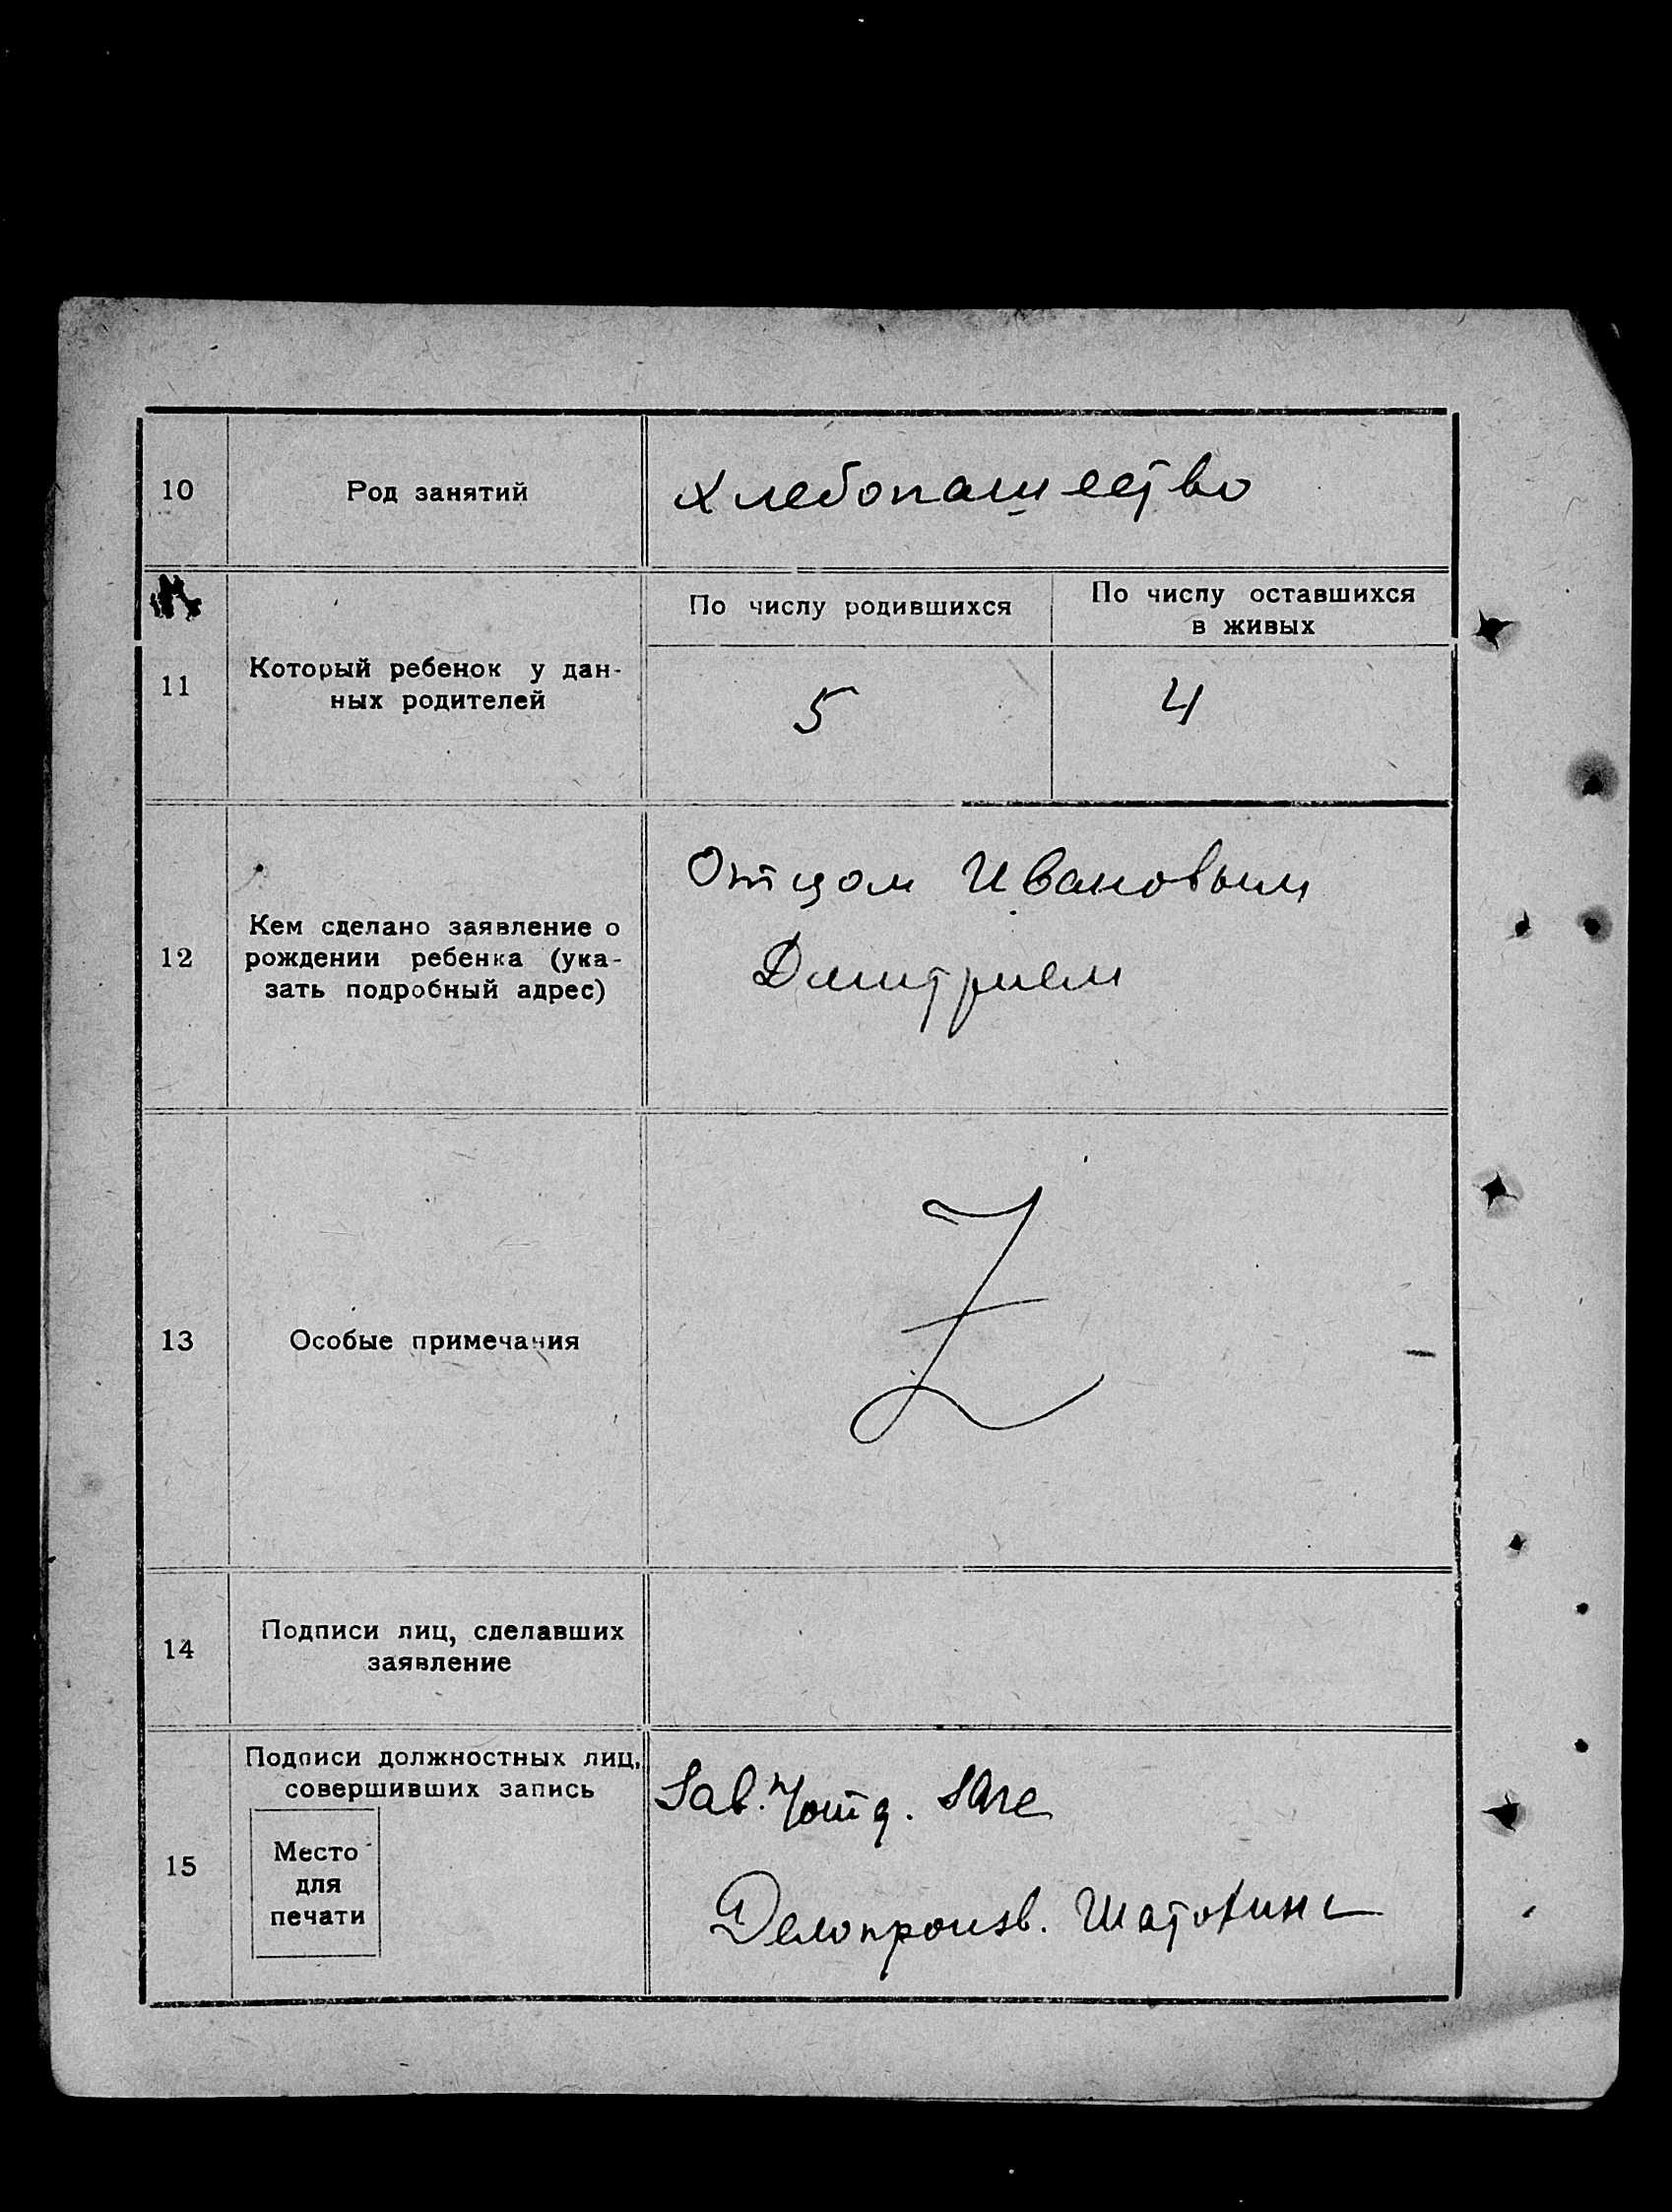 10 Род занятий Хлебопашество
По числу родившихся По числу оставшихся
в живых
11 Который ребенок у дан-
ных родителей
5 4
12 Кем сделано заявление о
рождении ребенка (ука-
зать подробный адрес)
Отцом Ивановым
Дмитрием
13 Особые примечания
Z
14 Подписи лиц, сделавших
заявление
15 Подписи должностных лиц,
совершивших запись
Место
для
печати
Зав.
Делопроизв.